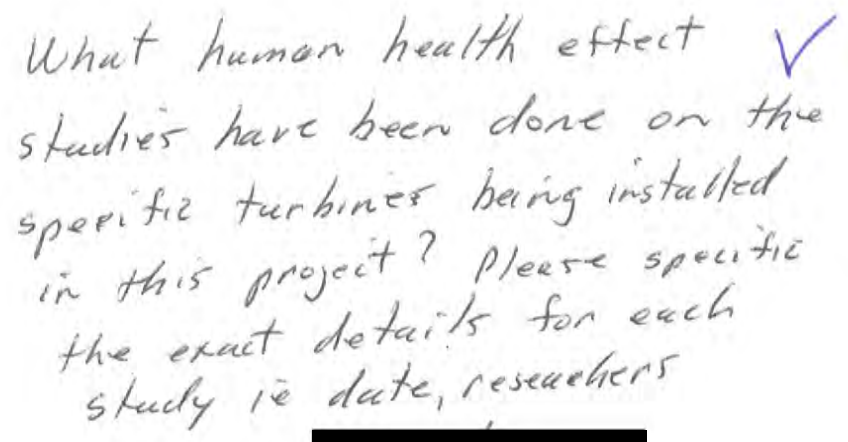 What human health effect
studies have been done on the
specific turbines being installed
in this project? Please specific
the exact details for each
study ie date, reseachers